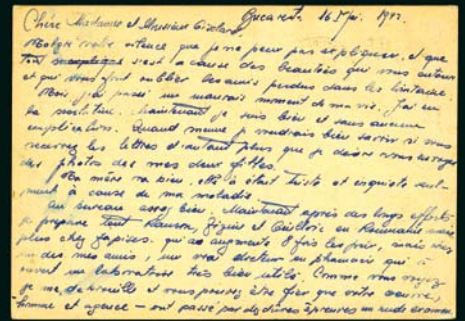 Chère Madame et Monsieur
Bucarest 16 Mai. 19
Malgré votre silence que je ne peux pas expliquer, et que
c'est à cause des beautés qui vous entoure
et qui vous font oublier les amis perdus dans les lointaine.
Mois j'ai passé un mauvais moment de ma vie. J'ai eu
la Maintenant je suis bien et sans aucune
complication. Quand meme je voudrais bien savoir si vous
recevrez les lettres d'autant plus que je désire vous envoyer
des photos des mes deux filles.
Ma mère va bien, elle à était triste et inquiete seul-
ment à cause de ma maladie.
Au bureau assez bien. Maintenant après des longs efforts
je prépare tout et en Roumanie mais
plus chez qui as augmenté 8 fois les prix, mais chez
un des mes amis, un vrai docteur en pharmacie qui à
ouvert un laboratoire très bien utilé. Comme vous voyez
je me débrouille et vous pouvez être fier que votre oeuvre,
homme et agence — ont passé par des dures épreuves un rude examen